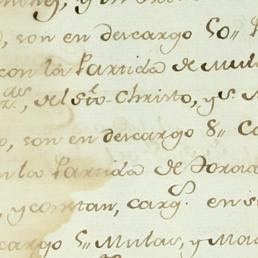 , son en descargo 50"
con la Partida de Mula
del Sto. Christo, y S.
o, son en descargo 8" Ca
n la Partida de Dora
, y constan, carg.s en s
cargo 5" Mulas, y Ma